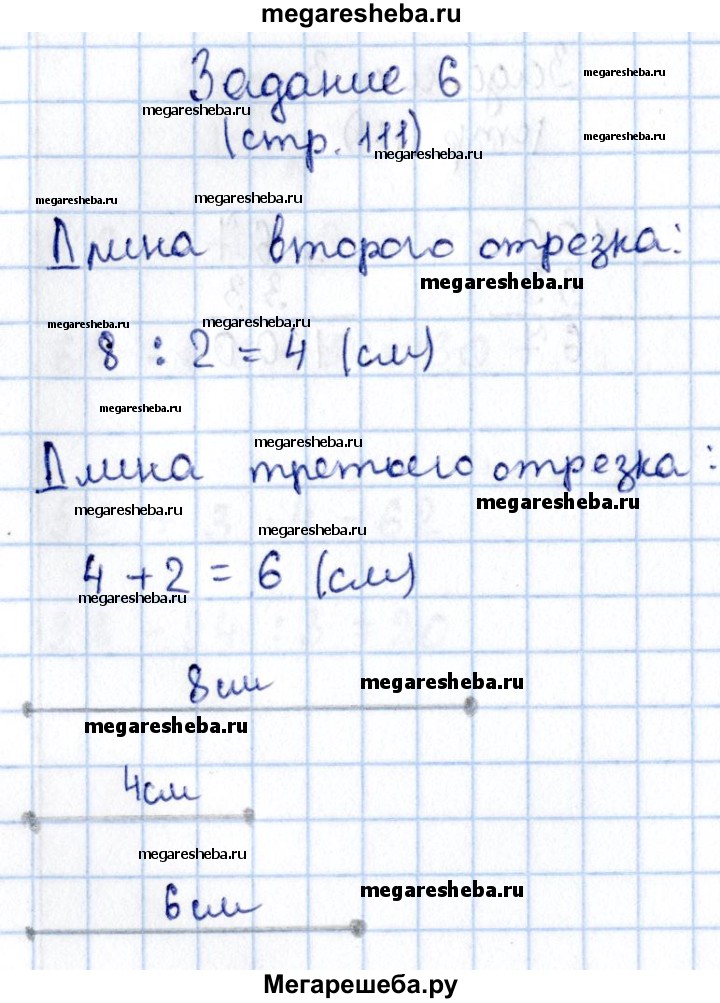 megaresheba.ru
Задание 6
megaresheba.ru
megaresheba.ru
(стр. 111)
megaresheba.ru
megaresheba.ru
megaresheba.ru
megaresheba.ru
Длина второго отрезка:
megaresheba.ru
megaresheba.ru
megaresheba.ru
8 : 2 = 4 (см)
megaresheba.ru
megaresheba.ru
Длина третьего отрезка:
megaresheba.ru
megaresheba.ru
megaresheba.ru
4 + 2 = 6 (см)
megaresheba.ru
8 см
megaresheba.ru
megaresheba.ru
4 см
megaresheba.ru
6 см
megaresheba.ru
Мегарешеба.ру